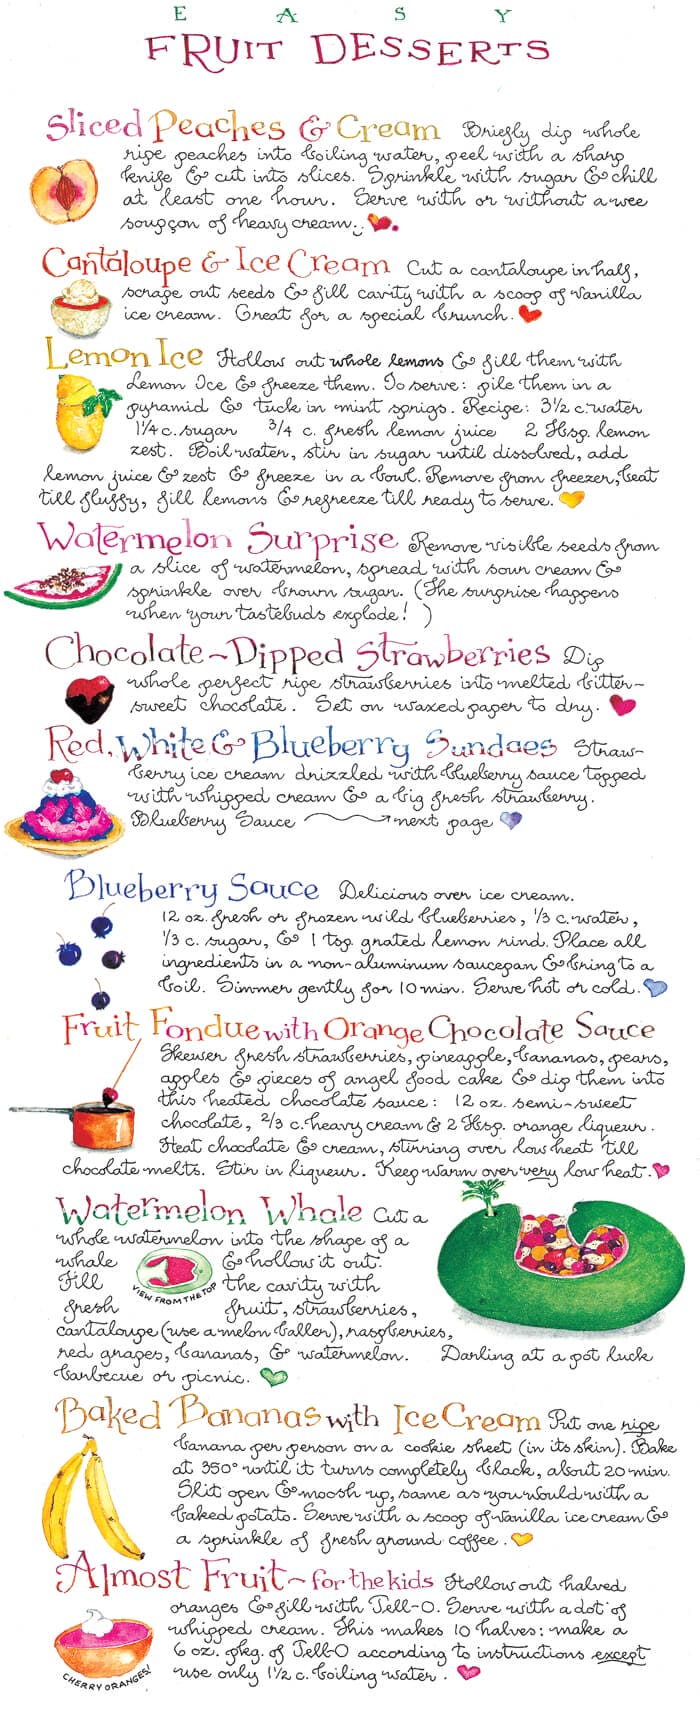 EASY
FRUIT DESSERTS
Sliced Peaches & Cream Briefly dip whole
ripe peaches into boiling water, peel with a sharp
knife & cut into slices. Sprinkle with sugar & chill
at least one hour. Serve with or without a wee
soupçon of heavy cream.
Cantaloupe & Ice Cream Cut a cantaloupe in half,
scrape out seeds & fill cavity with a scoop of vanilla
ice cream. Great for a special brunch.
Lemon Ice Hollow out whole lemons & fill them with
Lemon Ice & freeze them. To serve: pile them in a
pyramid & tuck in mint sprigs. Recipe: 3½ c. water
1¼ c. sugar ¾ c. fresh lemon juice 2 Tbsp. lemon
zest. Boil water, stir in sugar until dissolved, add
lemon juice & zest & freeze in a bowl. Remove from freezer, beat
till fluffy, fill lemons & refreeze till ready to serve.
Watermelon Surprise Remove visible seeds from
a slice of watermelon, spread with sour cream &
sprinkle over brown sugar. (The surprise happens
when your tastebuds explode! )
Chocolate~Dipped Strawberries Dip
whole perfect ripe strawberries into melted bitter-
sweet chocolate. Set on waxed paper to dry.
Red, White & Blueberry Sundaes Straw-
berry ice cream drizzled with blueberry sauce topped
with whipped cream & a big fresh strawberry.
Blueberry Sauce → next page
Blueberry Sauce Delicious over ice cream.
12 oz. fresh or frozen wild blueberries, ⅓ c. water,
⅓ c. sugar, & 1 tsp. grated lemon rind. Place all
ingredients in a non-aluminum saucepan & bring to a
boil. Simmer gently for 10 min. Serve hot or cold.
Fruit Fondue with Orange Chocolate Sauce
Skewer fresh strawberries, pineapple, bananas, pears,
apples & pieces of angel food cake & dip them into
this heated chocolate sauce: 12 oz. semi-sweet
chocolate, ⅔ c. heavy cream & 2 Tbsp. orange liqueur.
Heat chocolate & cream, stirring over low heat till
chocolate melts. Stir in liqueur. Keep warm over very low heat.
Watermelon Whale Cut a
whole watermelon into the shape of a
whale & hollow it out.
VIEW FROM THE TOP
Fill the cavity with
fresh fruit, strawberries,
cantaloupe (use a melon baller), raspberries,
red grapes, bananas, & watermelon. Darling at a pot luck
barbecue or picnic.
Baked Bananas with Ice Cream Put one ripe
banana per person on a cookie sheet (in its skin). Bake
at 350° until it turns completely black, about 20 min.
Slit open & moosh up, same as you would with a
baked potato. Serve with a scoop of vanilla ice cream &
a sprinkle of fresh ground coffee.
Almost Fruit~for the kids Hollow out halved
oranges & fill with Jell-O. Serve with a dot of
whipped cream. This makes 10 halves: make a
6 oz. pkg. of Jell-O according to instructions except
use only 1½ c. boiling water.
CHERRY ORANGES!